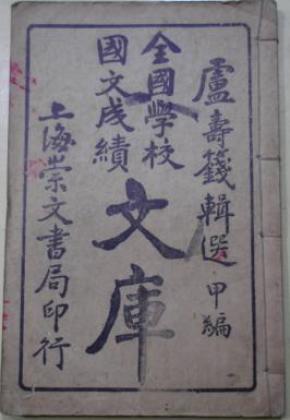 盧壽籛輯選 甲編
全國學校
國文成績
文庫
上海崇文書局印行